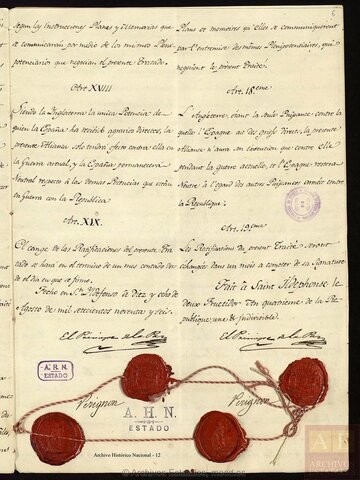 segun las Instrucciones Planes y Memorias que
se comunicarán por medio de los mismos Pleni
potenciarios que negocian el presente Tratado.
Art. XVIII
Siendo la Inglaterra la única Potencia de
quien la España ha recibido agravios directos, la
presente Alianza solo tendrá efecto contra ella en
la Guerra actual, y la España permanecerá
Neutral respecto á las demas Potencias que están
en Guerra con la Republica
Art. XIX.
El cange de las Ratificaciones del presente Tra
tado se hará en el termino de un mes contado des
de el dia en que se firme.
Fecho en Sn. Yldefonso de Diez y ocho de
Agosto de mil setecientos noventa y seis.
El Principe de la Paz
Perignon
Plans et memoires qu'elles se communiqueront
par l'entremise des mêmes Plenipotentiaires, qui
negocient le présent Traité.
Art. 18eme
L'Angleterre, étant la seule Puissance contre la
quelle l'Espagne ait des griefs Directs, la presente
Alliance n'aura son execution que contre Elle
pendant la guerre actuelle, et l'Espagne restera
Neutre à l'egard des autres Puissances armées contre
la Republique.
Art. 19eme
Les Ratifications du present Traité seront
échangées dans un mois a compter de sa Signature
Fait à Saint Ildephonse le
Deux Fructidor an quatrieme de la Re
publique, une & indivisible.
El Principe de la Paz
Perignon
A.H.N.
ESTADO
A.H.N.
ESTADO
Archivo Histórico Nacional - 12
ARCHIVO
© Archivos Estatales, mecd.es